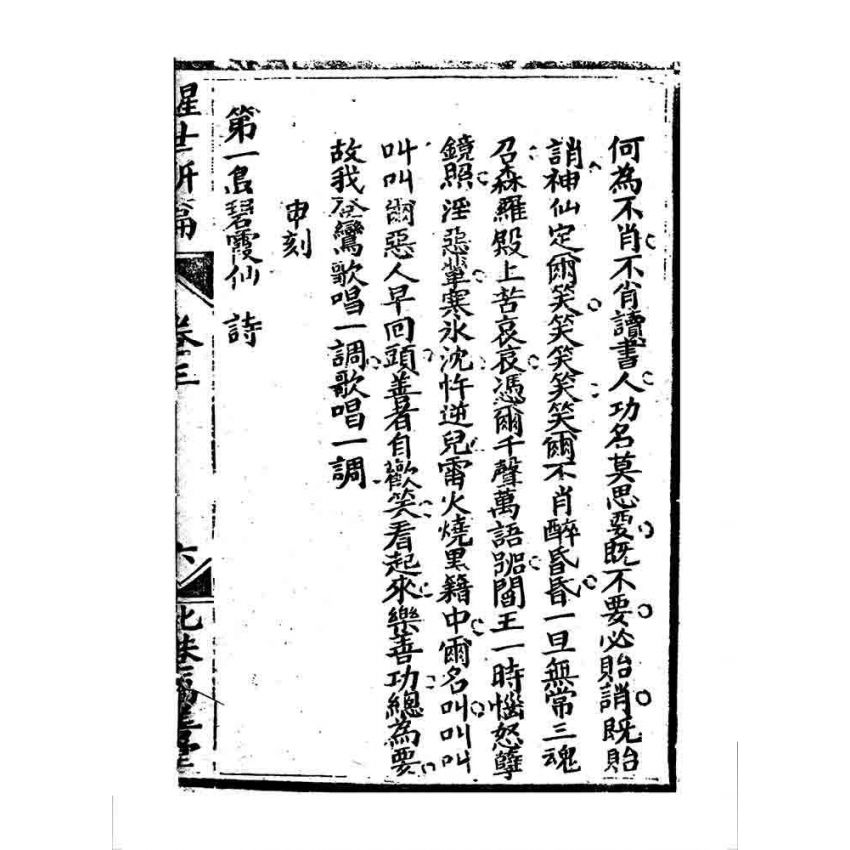 何為不肖不肯讀書人功名莫思要既不要必貽誚既貽
誚神仙定爾笑笑笑笑笑爾不肖醉昏昏一旦無常三魂
召森羅殿上苦哀哀憑爾千聲萬語號閻王一時惱怒孽
鏡照淫惡輩寒氷沈忤逆兒雷火燒黑籍中爾名叫叫叫
叫叫爾惡人早回頭善者自歡笑看起來樂善功總為要
故我登鸞歌唱一調歌唱一調
申刻
第一島碧霞仙 詩
醒世新篇 卷三 六